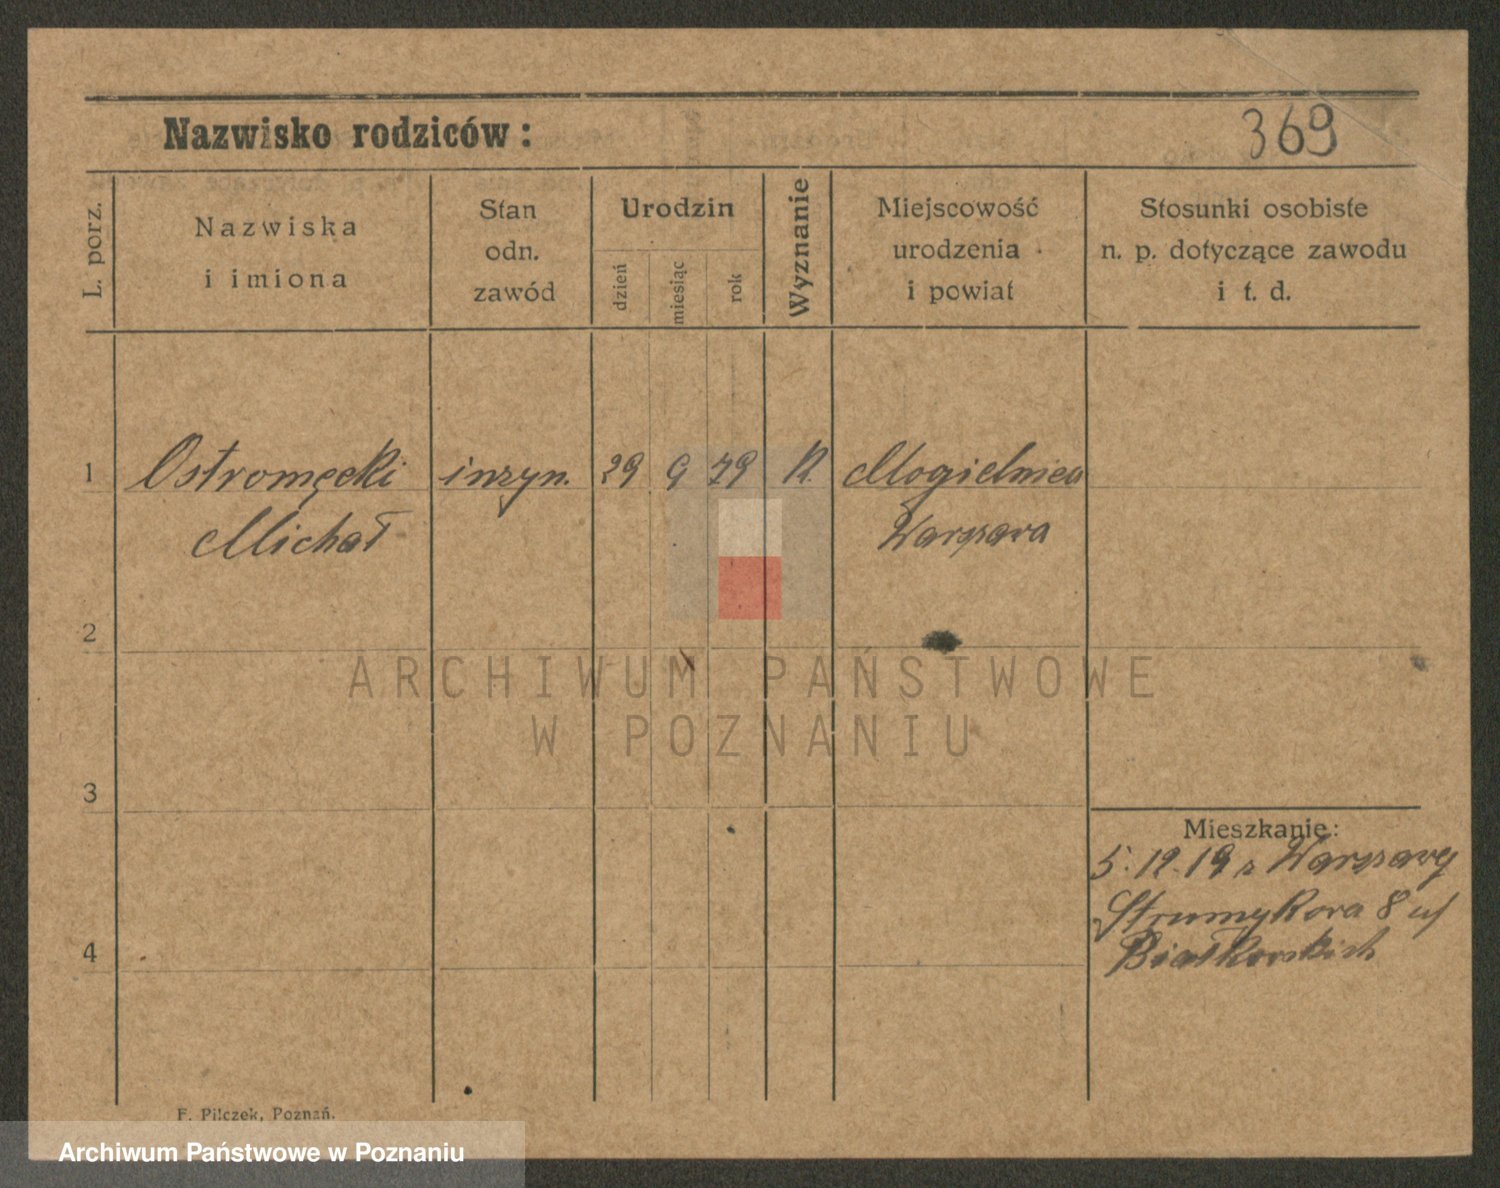 Nazwisko rodziców:
369
L. porz.
Nazwiska
i imiona
Stan
odn.
zawód
Urodzin
dzień
miesiąc
rok
Wyznanie
Miejscowość
urodzenia
i powiat
Stosunki osobiste
n. p. dotyczące zawodu
i t. d.
1
Ostromęcki inżyn. 29 9 79 R. Mogielnica
Michał Warszawa
2
ARCHIWUM PAŃSTWOWE
W POZNANIU
3
Mieszkanie:
5.12.19 z Warszawy
Strumykowa 8 u/
Białkowskich
4
F. Pilczek, Poznań.
Archiwum Państwowe w Poznaniu